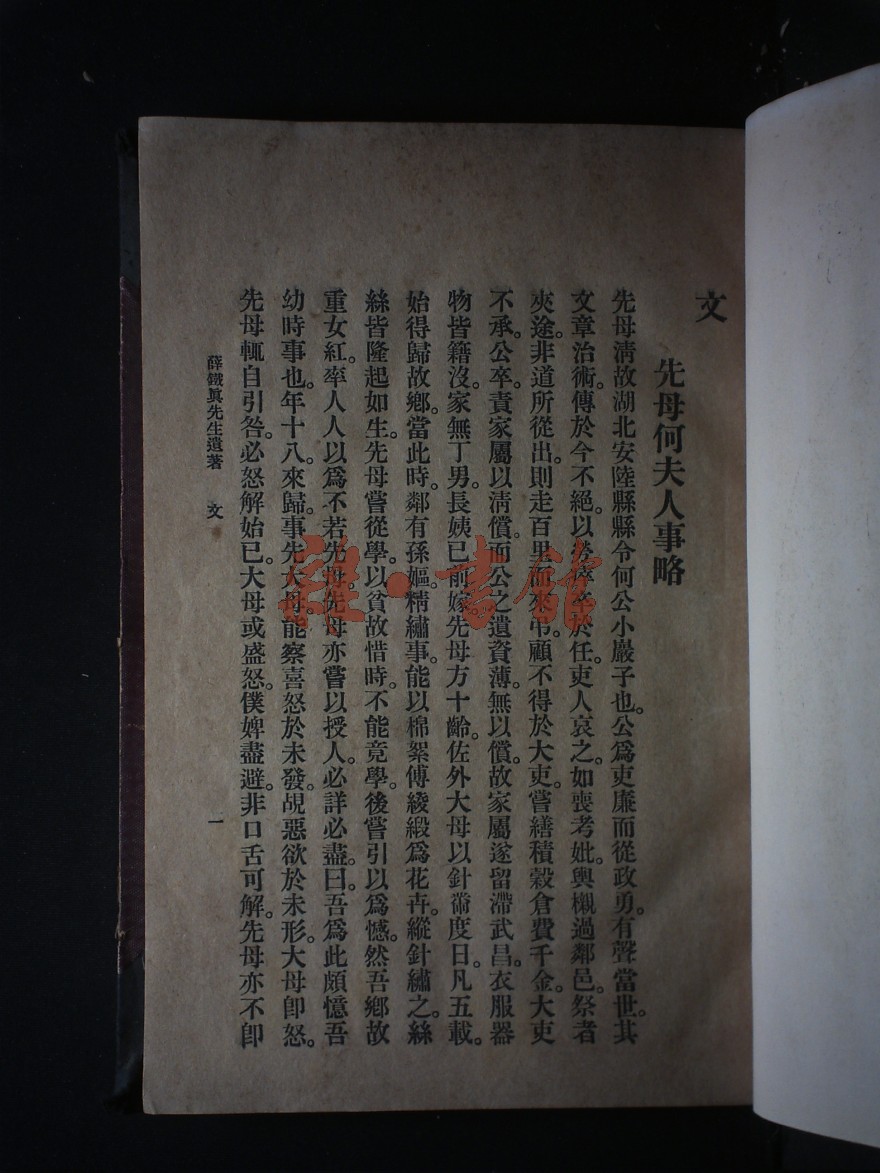 文
先母何夫人事略
先母淸故湖北安陸縣縣令何公小巖子也。公爲吏廉而從政勇。有聲當世。其
文章治術。傳於今不絕。以勞瘁卒於任。吏人哀之。如喪考妣。輿櫬過鄰邑。祭者
夾途。非道所從出。則走百里而來弔。顧不得於大吏。嘗繕積穀倉費千金。大吏
不承。公卒。責家屬以淸償。而公之遺資薄。無以償。故家屬遂留滯武昌。衣服器
物皆籍沒。家無丁男。長姨已前嫁。先母方十齡。佐外大母以針黹度日。凡五載。
始得歸故鄕。當此時。鄰有孫嫗。精繡事。能以棉絮傅綾緞爲花卉。縱針繡之。絲
絲皆隆起如生。先母嘗從學。以貧故惜時。不能竟學。後嘗引以爲憾。然吾鄕故
重女紅。率人人以爲不若先母。先母亦嘗以授人。必詳必盡。曰。吾爲此頗憶吾
幼時事也。年十八來歸。事先大母。能察喜怒於未發。覘惡欲於未形。大母卽怒。
先母輒自引咎。必怒解始已。大母或盛怒。僕婢盡避。非口舌可解。先母亦不卽
薛鐵眞先生遺著 文 一
雜·書館